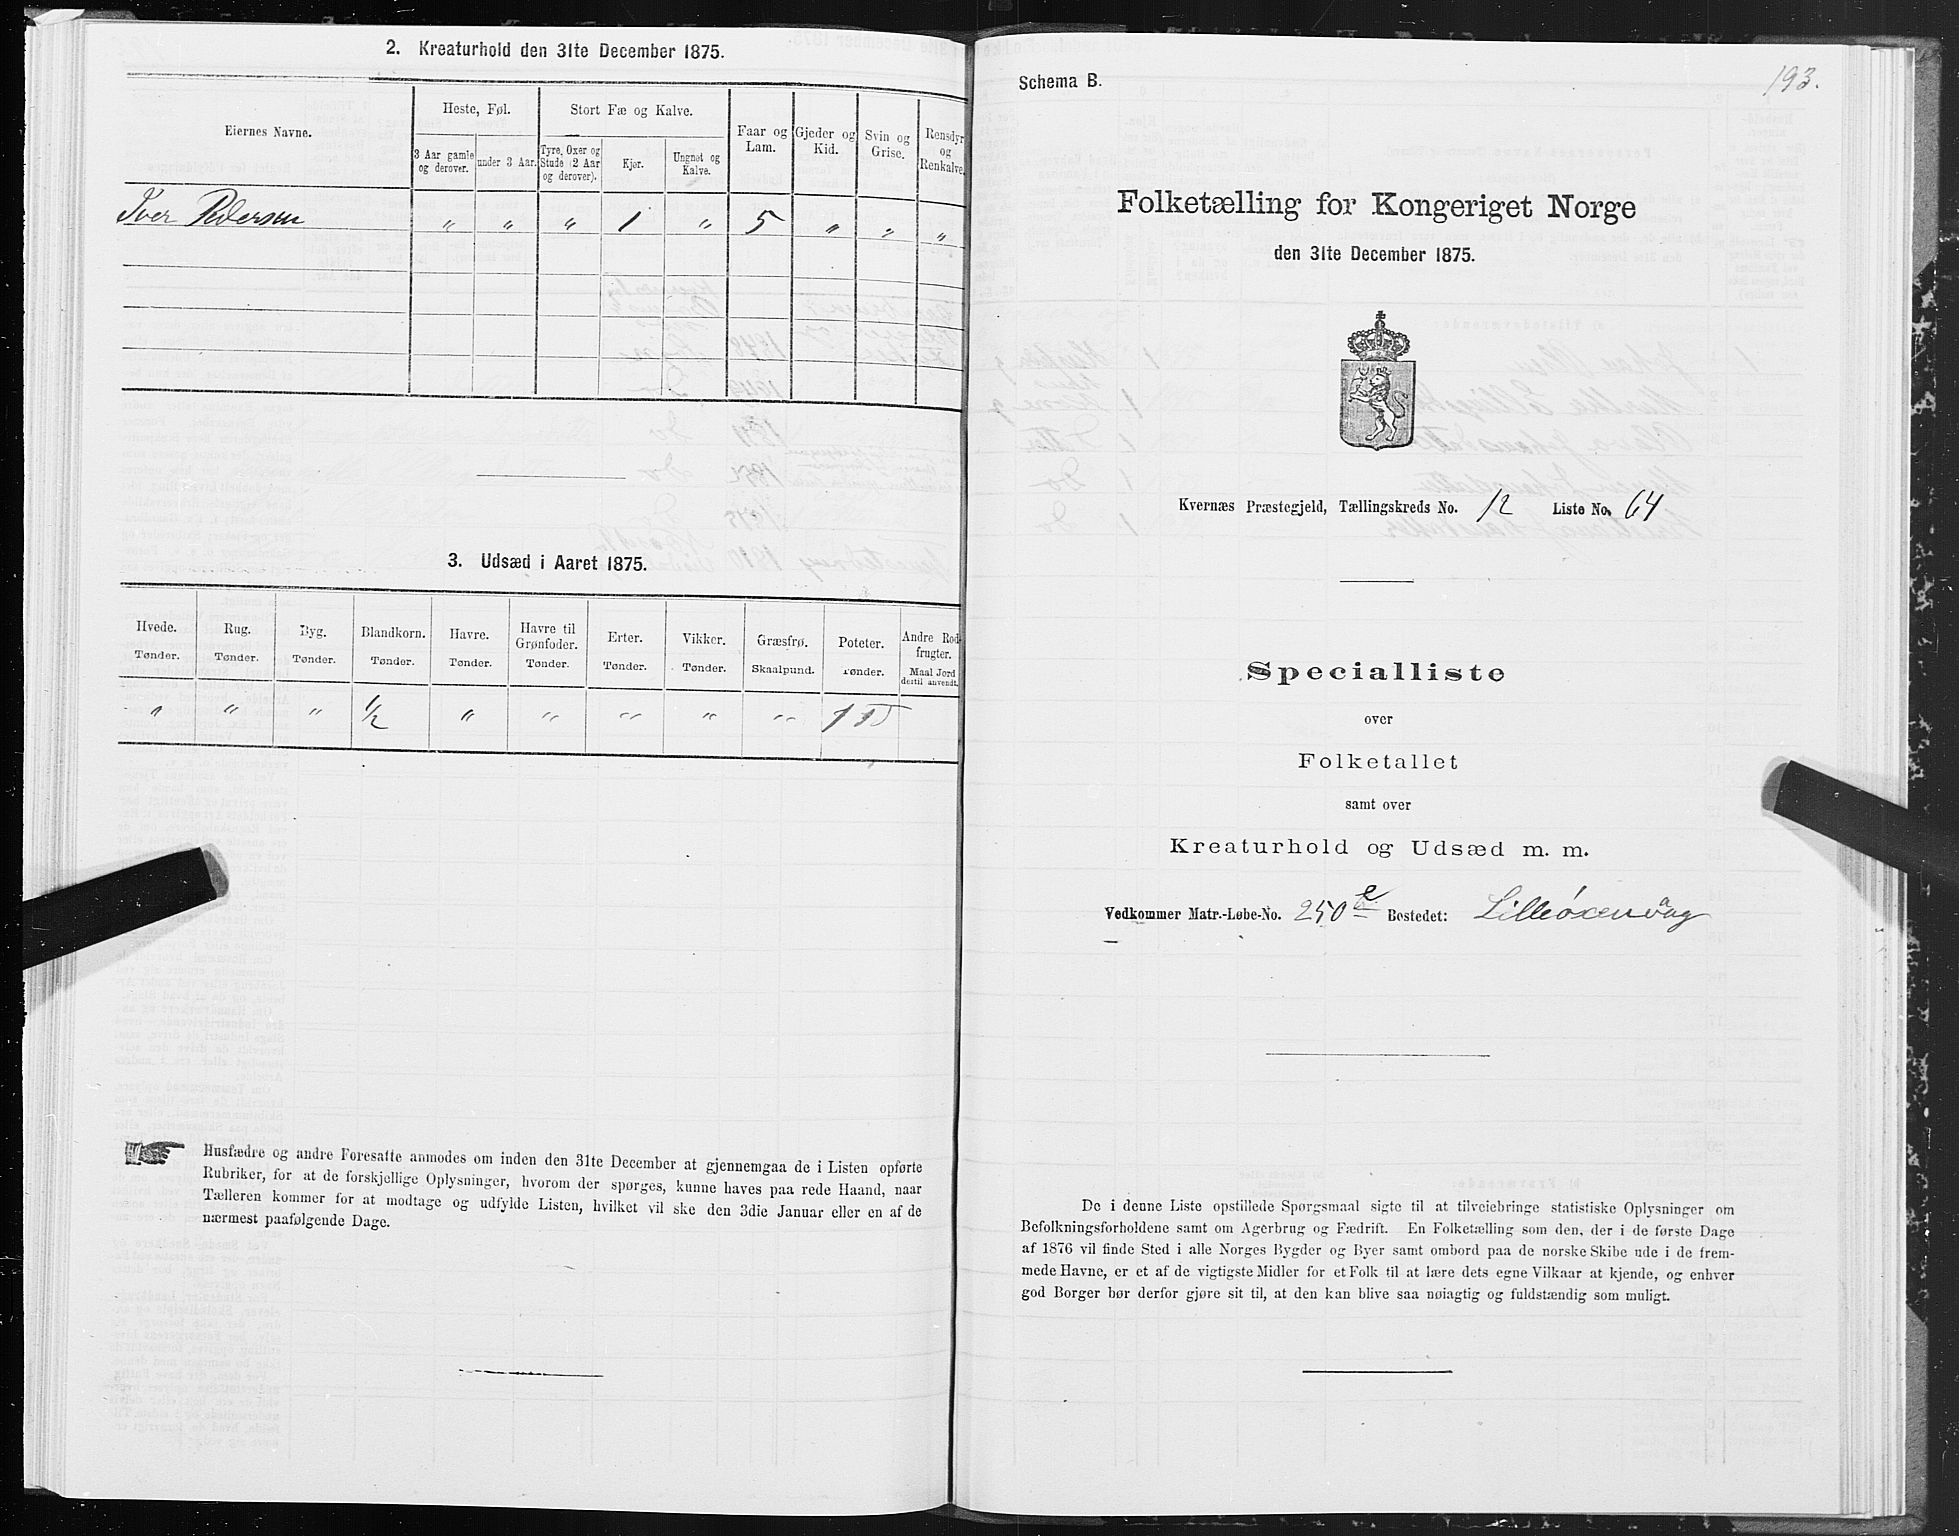 2. Kreaturhold den 31te December 1875.
Eiernes Navne.
Heste, Føl.
Stort Fæ og Kalve.
Faar og Lam.
Gjeder og Kid.
Svin og Grise.
Rensdyr og Renkalve.
3 Aar gamle og derover.
under 3 Aar.
Tyre, Oxer og Stude (2 Aar og derover).
Kjør.
Ungnøt og Kalve.
Iver Pedersen " " " 1 " 5 " " "
3. Udsæd i Aaret 1875.
Hvede. Rug. Byg. Blandkorn. Havre. Havre til Grønfoder. Erter. Vikker. Græsfrø. Poteter. Andre Rodfrugter.
Tønder. Tønder. Tønder. Tønder. Tønder. Tønder. Tønder. Tønder. Skaalpund. Tønder. Maal Jord dertil anvendt.
" " " 1/2 " " " " "
Husfædre og andre Foresatte anmodes om inden den 31te December at gjennemgaa de i Listen opførte
Rubriker, for at de forskjellige Oplysninger, hvorom der spørges, kunne haves paa rede Haand, naar
Tælleren kommer for at modtage og udfylde Listen, hvilket vil ske den 3die Januar eller en af de
nærmest paafølgende Dage.
Schema B.
193.
Folketælling for Kongeriget Norge
den 31te December 1875.
Kvernæs Præstegjeld, Tællingskreds No. 12 Liste No. 64
Specialliste
over
Folketallet
samt over
Kreaturhold og Udsæd m. m.
Vedkommer Matr.-Løbe-No. 250 e Bostedet: Lilleøxenvåg
De i denne Liste opstillede Spørgsmaal sigte til at tilveiebringe statistiske Oplysninger om
Befolkningsforholdene samt om Agerbrug og Fædrift. En Folketælling som den, der i de første Dage
af 1876 vil finde Sted i alle Norges Bygder og Byer samt ombord paa de norske Skibe ude i de frem-
mede Havne, er et af de vigtigste Midler for et Folk til at lære dets egne Vilkaar at kjende, og enhver
god Borger bør derfor gjøre sit til, at den kan blive saa nøiagtig og fuldstændig som muligt.